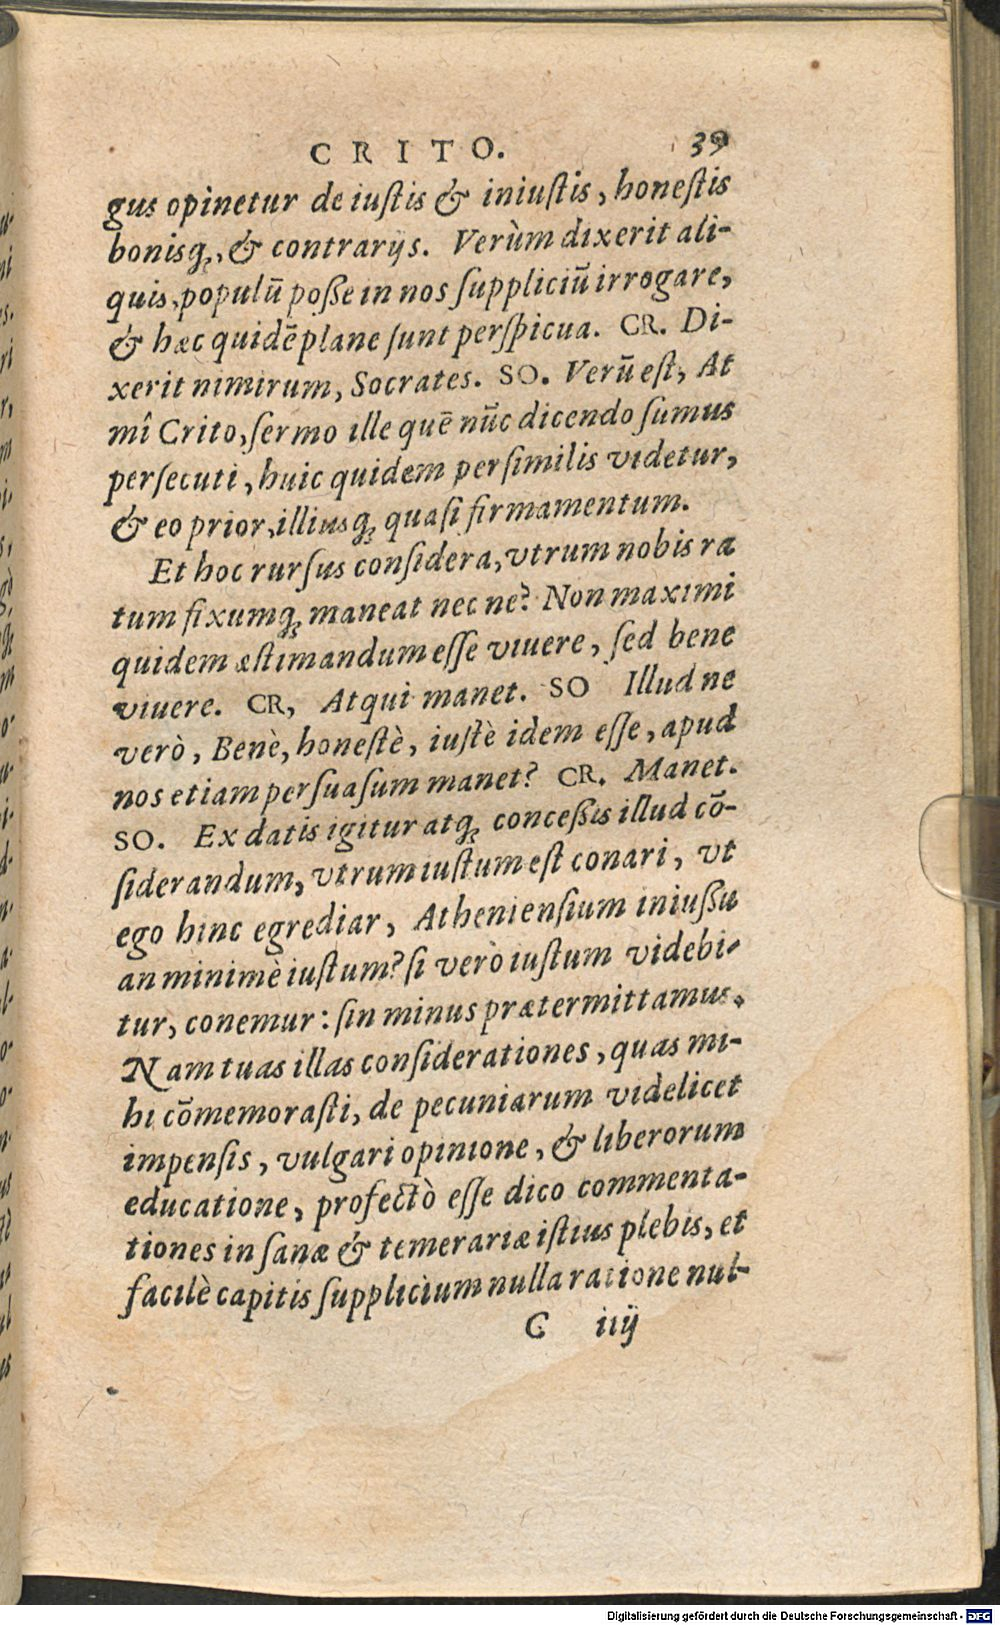 CRITO. 39
gus opinetur de iustis & iniustis, honestis
bonisq́;, & contrarijs. Verùm dixerit ali-
quis, populū posse in nos suppliciū irrogare,
& hæc quidē plane sunt perspicua. CR. Di-
xerit nimirum, Socrates. SO. Verū est, At
mî Crito, sermo ille quē nūc dicendo sumus
persecuti, huic quidem persimilis videtur,
& eo prior, illiusq; quasi firmamentum.
Et hoc rursus considera, vtrum nobis ra
tum fixumq; maneat nec ne? Non maximi
quidem æstimandum esse viuere, sed bene
viuere. CR, Atqui manet. SO Illud ne
verò, Benè, honestè, iustè idem esse, apud
nos etiam persuasum manet? CR. Manet.
SO. Ex datis igitur atq; concessis illud cō-
siderandum, vtrum iustum est conari, vt
ego hinc egrediar, Atheniensium iniussu
an minimè iustum? si verò iustum videbi-
tur, conemur: sin minus prætermittamus.
Nam tuas illas considerationes, quas mi-
hi cōmemorasti, de pecuniarum videlicet
impensis, vulgari opinione, & liberorum
educatione, profectò esse dico commenta-
tiones insanæ & temerariæ istius plebis, et
facilè capitis supplicium nulla ratione nul-
C iiij
Digitalisierung gefördert durch die Deutsche Forschungsgemeinschaft - DFG